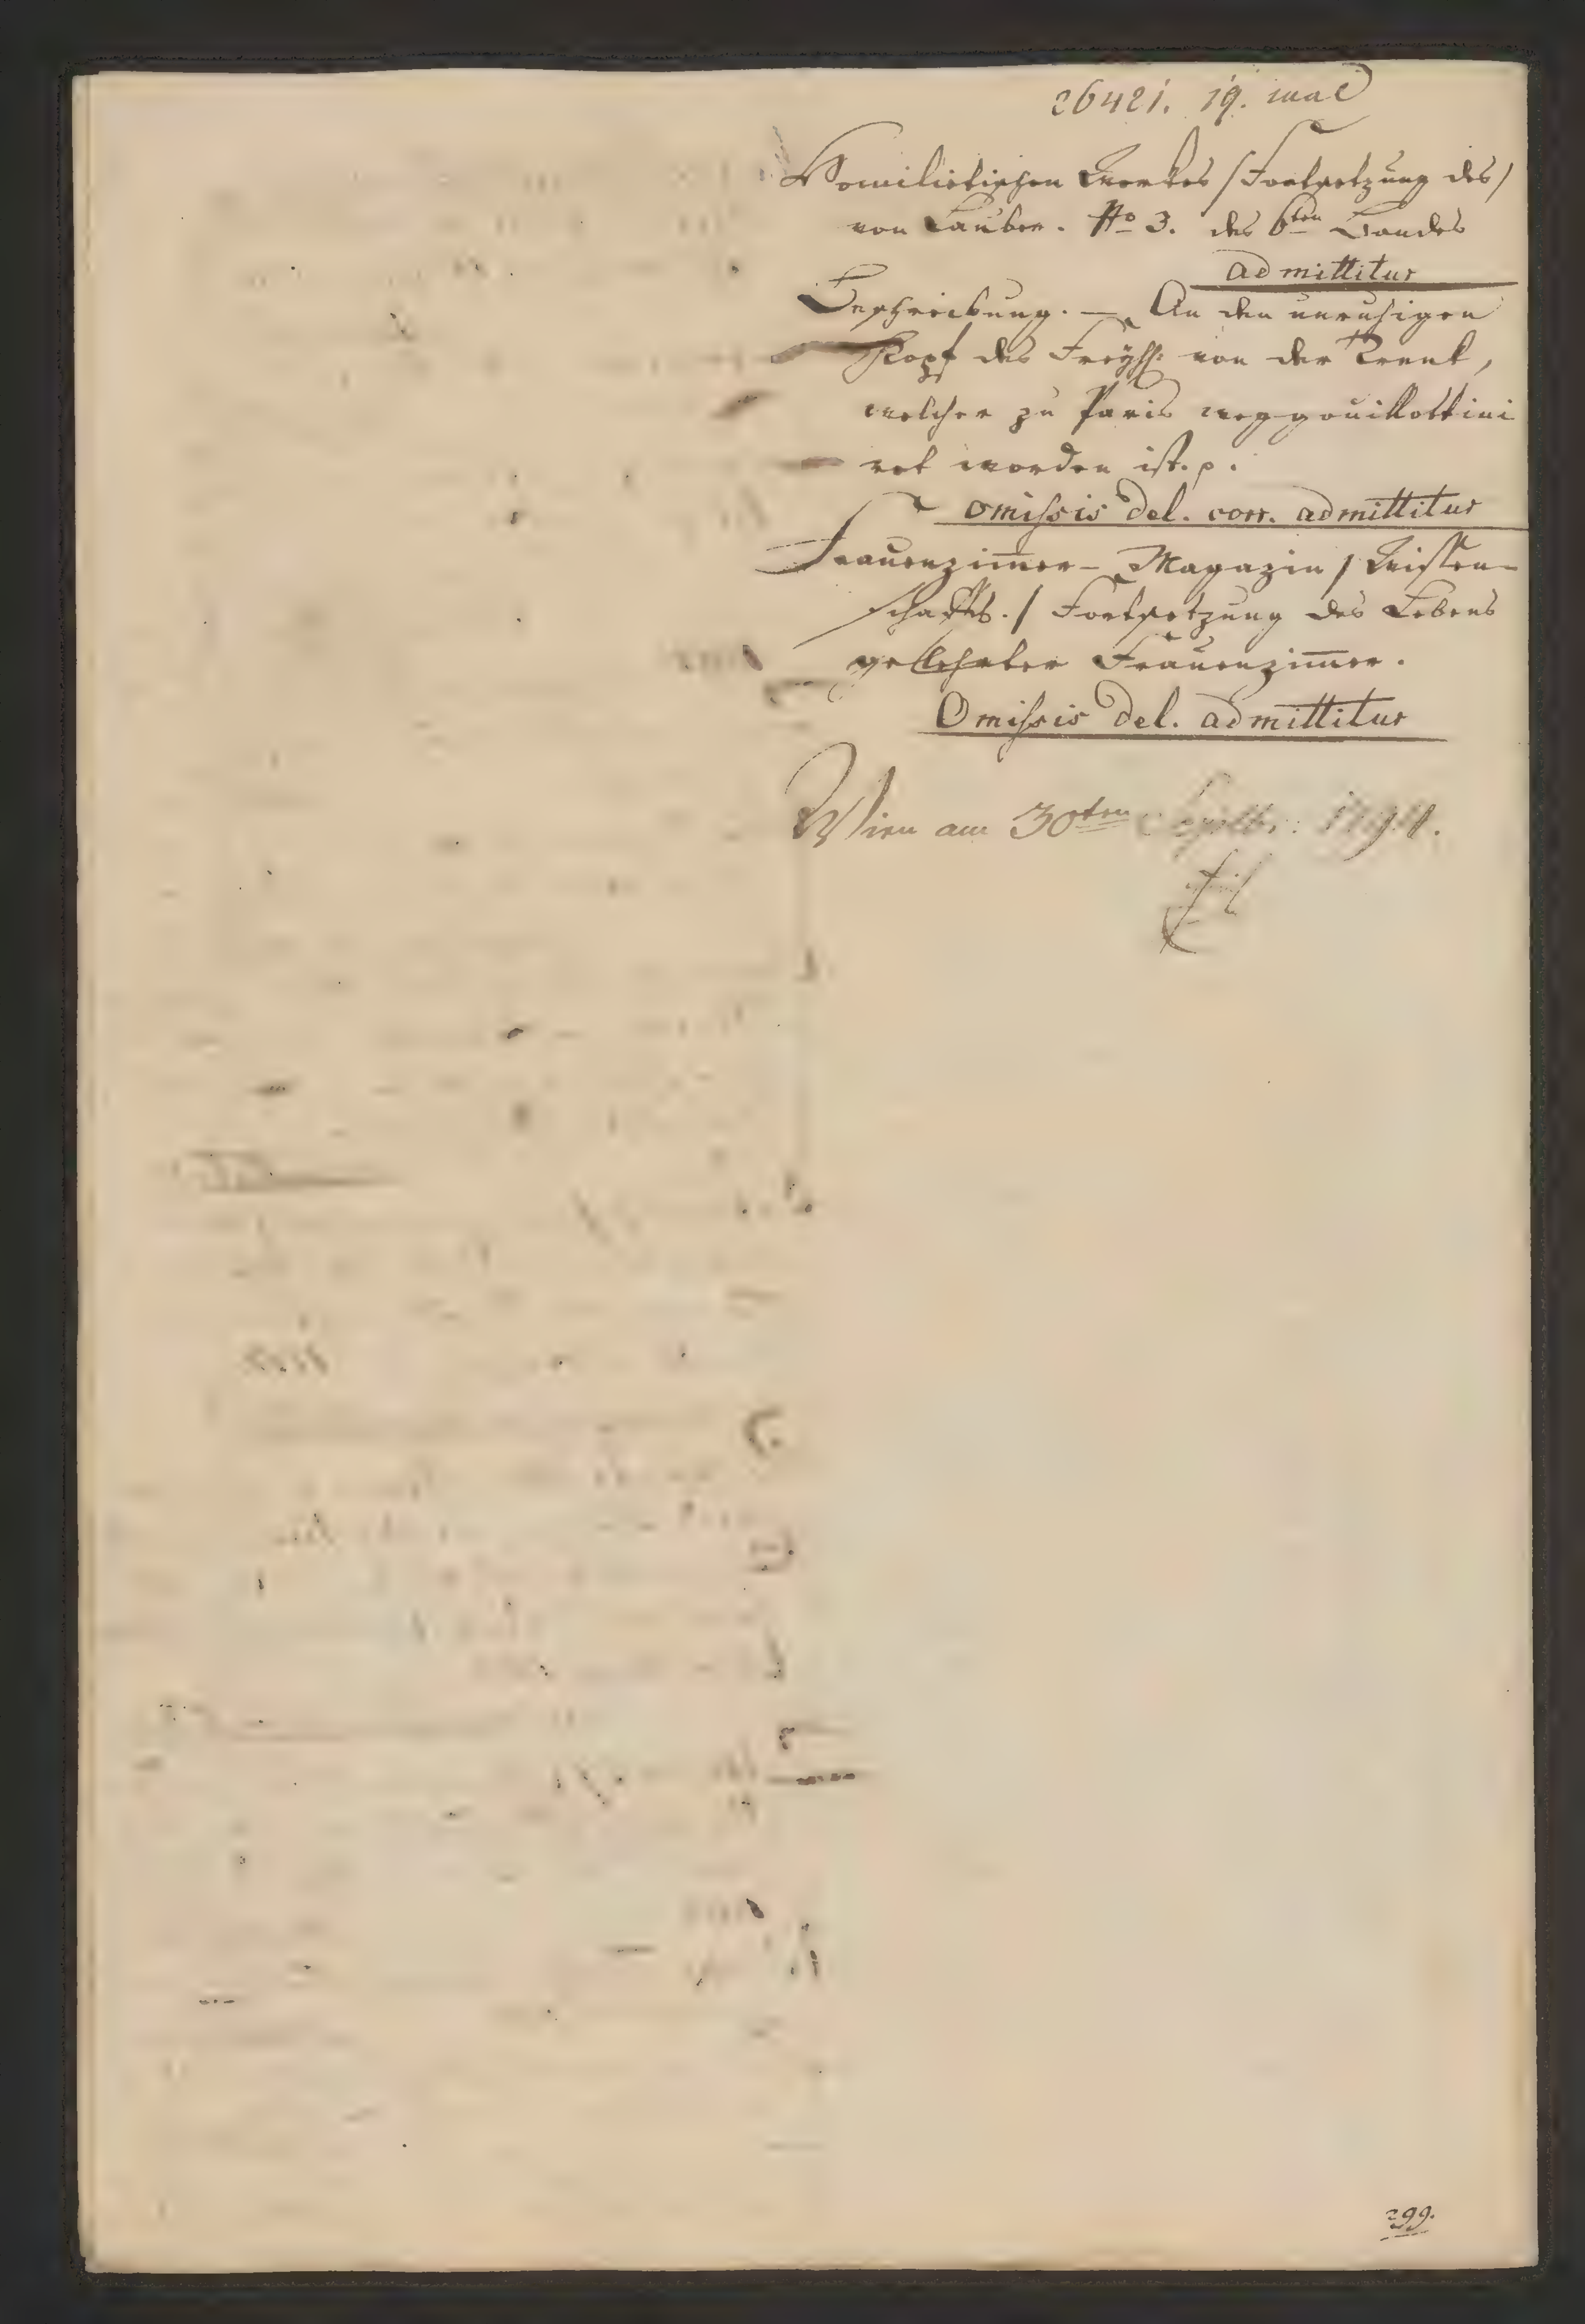 26421. 19. mai
Homilietischen Werkes /Fortsetzung des/
von Lauber. No 3. des 6ten Bandes
admittitur
Beschreibung. — An den unruhigen
Kopf des Freyh: von der Trenk,
welcher zu Paris weggouillottini
ret worden ist. p.
omissis del. corr. admittitur
Frauenzimer- Magazin / Wissen-
schaftl. / Fortsetzung des Lebens
gelehrter Frauenzimer.
Omissis del. admittitur
Wien am 30ten Septbr: 1794.
299.